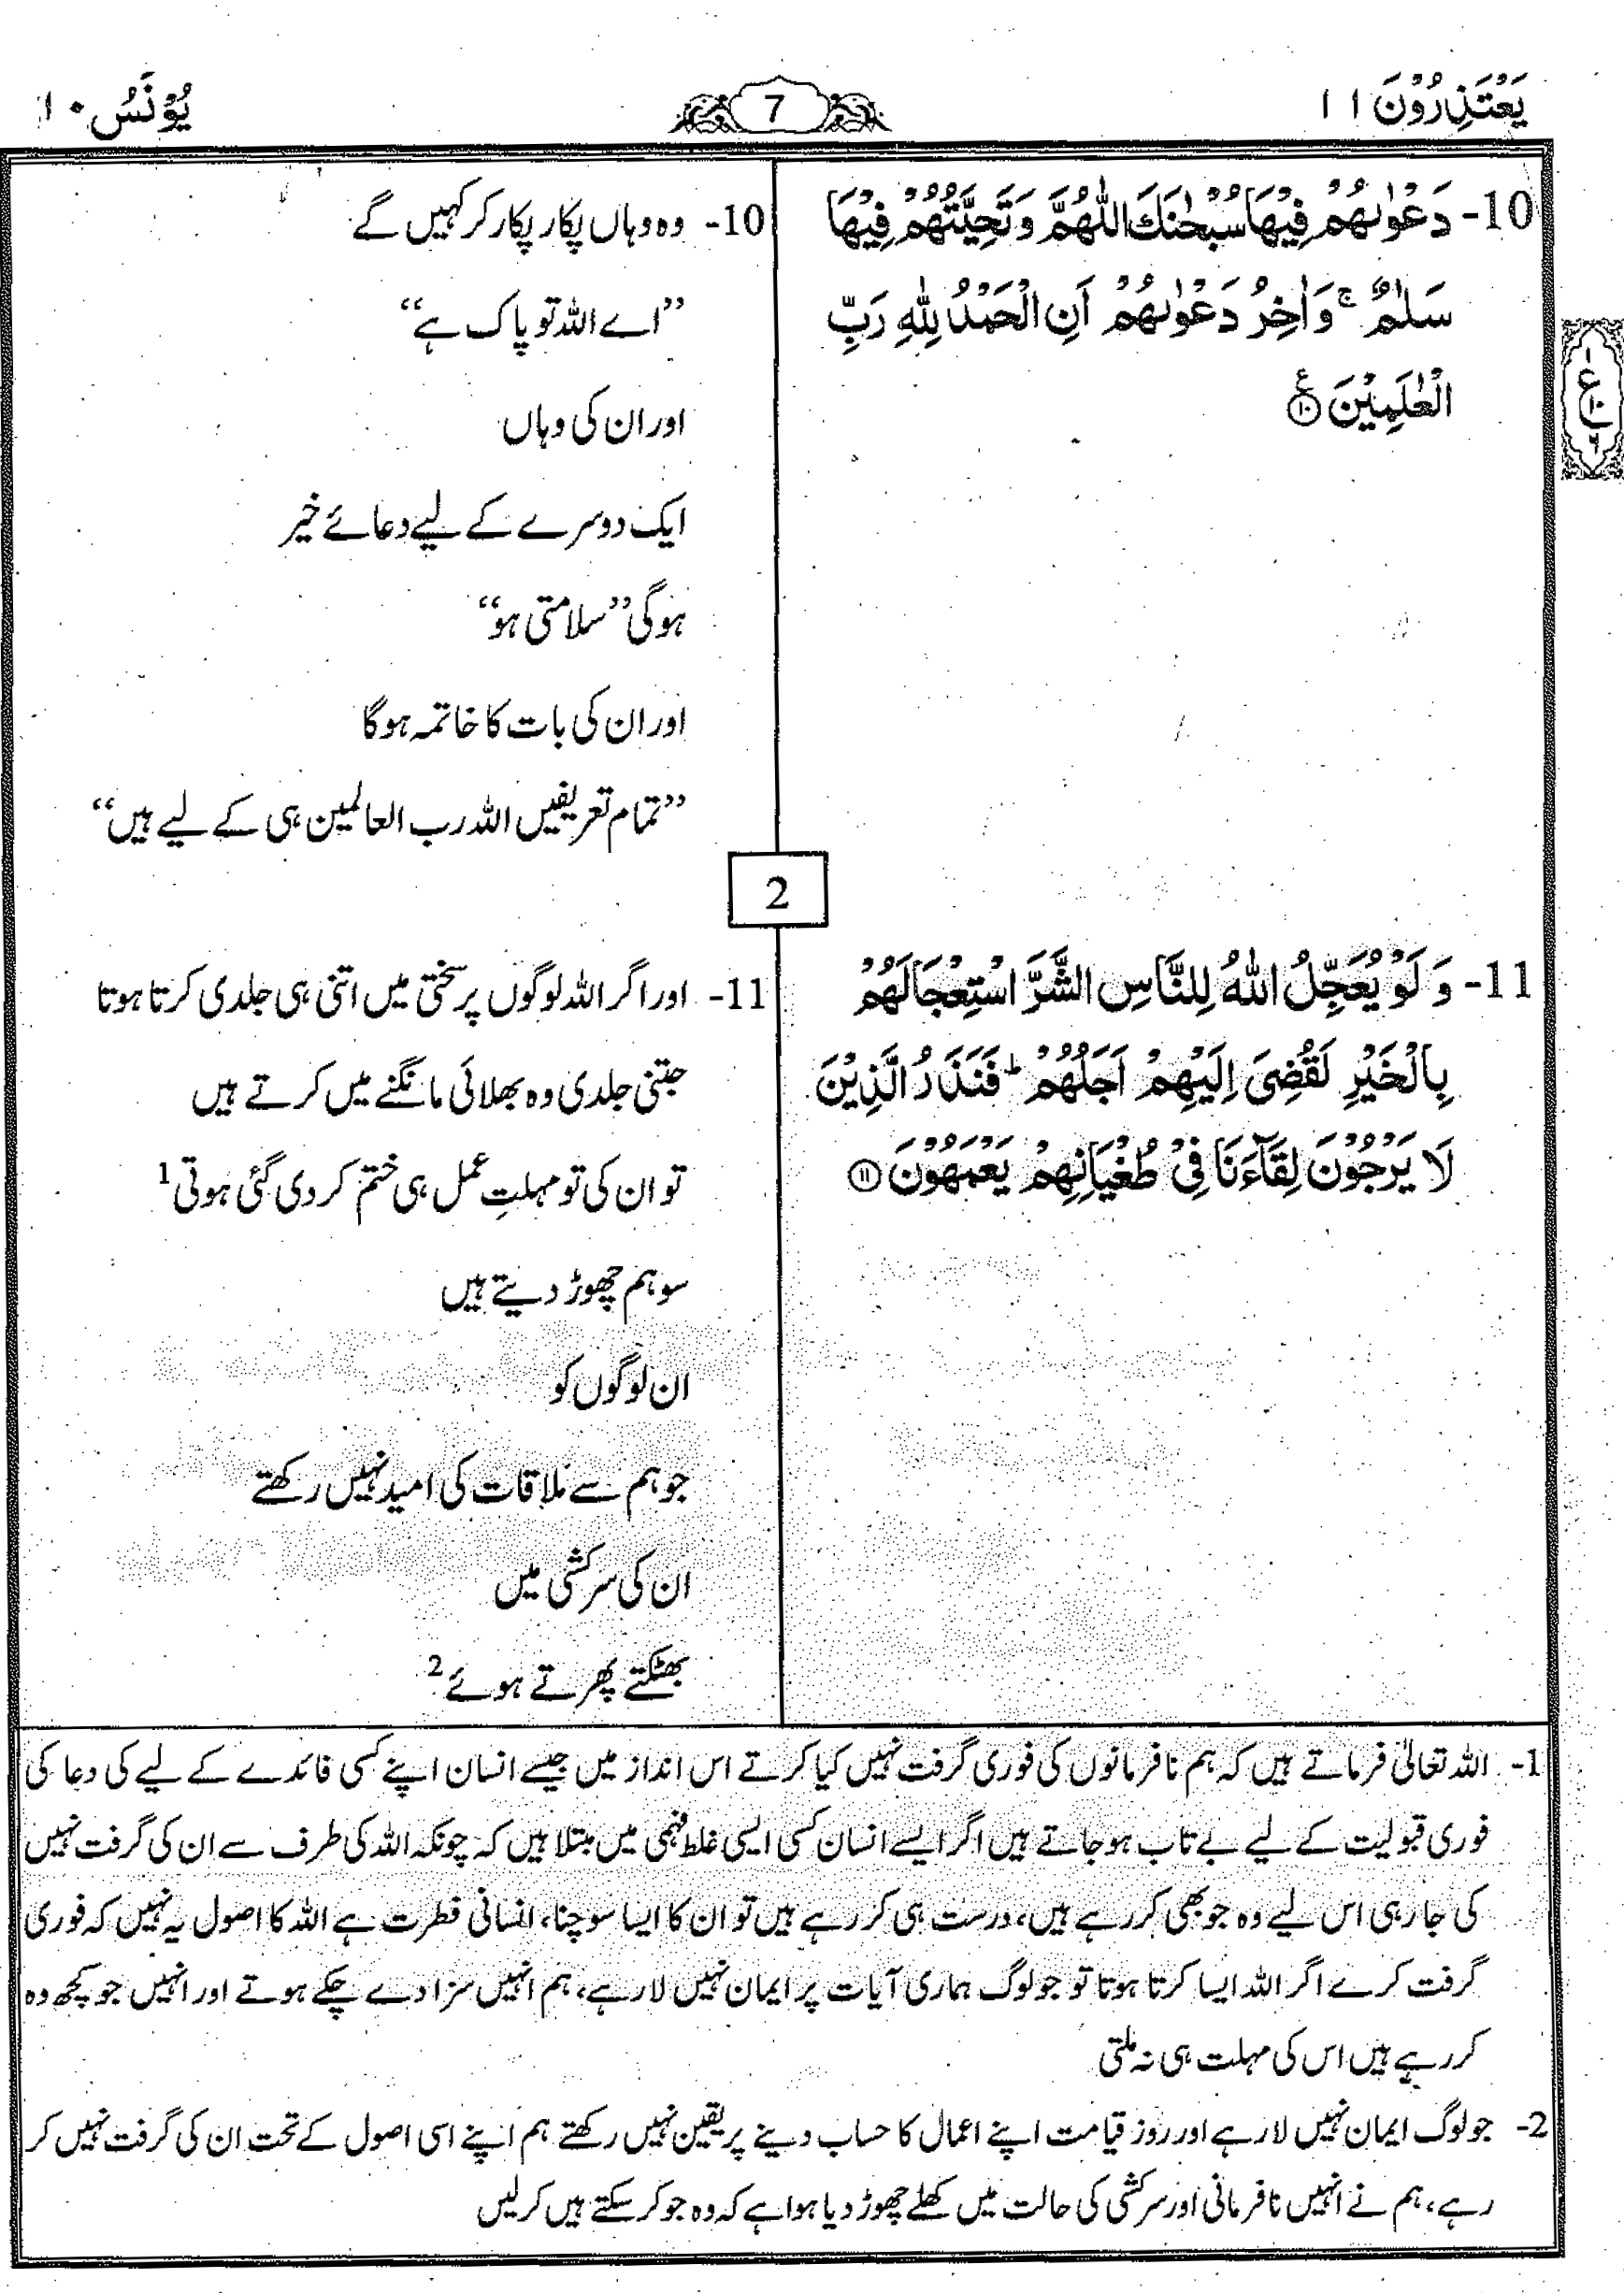 یَعْتَذِرُوْنَ ۱۱
7
یُوْنُسُ ۱۰
10- دَعْوٰىهُمْ فِیْهَا سُبْحٰنَكَ اللّٰهُمَّ وَ تَحِیَّتُهُمْ فِیْهَا
سَلٰمٌ ۚ وَ اٰخِرُ دَعْوٰىهُمْ اَنِ الْحَمْدُ لِلّٰهِ رَبِّ
الْعٰلَمِیْنَ ۧ ﴿۱۰﴾
۱
ع
۱۰
۶
10- وہ وہاں پکار پکار کر کہیں گے
”اے اللہ تو پاک ہے“
اور ان کی وہاں
ایک دوسرے کے لیے دعائے خیر
ہوگی ”سلامتی ہو“
اور ان کی بات کا خاتمہ ہوگا
”تمام تعریفیں اللہ رب العالمین ہی کے لیے ہیں“
2
11- وَ لَوْ یُعَجِّلُ اللّٰهُ لِلنَّاسِ الشَّرَّ اسْتِعْجَالَهُمْ
بِالْخَیْرِ لَقُضِیَ اِلَیْهِمْ اَجَلُهُمْ ؕ فَنَذَرُ الَّذِیْنَ
لَا یَرْجُوْنَ لِقَآءَنَا فِیْ طُغْیَانِهِمْ یَعْمَهُوْنَ ﴿۱۱﴾
11- اور اگر اللہ لوگوں پر سختی میں اتنی ہی جلدی کرتا ہوتا
جتنی جلدی وہ بھلائی مانگنے میں کرتے ہیں
تو ان کی تو مہلتِ عمل ہی ختم کر دی گئی ہوتی 1
سو ہم چھوڑ دیتے ہیں
ان لوگوں کو
جو ہم سے ملاقات کی امید نہیں رکھتے
ان کی سرکشی میں
بھٹکتے پھرتے ہوئے 2
1- اللہ تعالیٰ فرماتے ہیں کہ ہم نافرمانوں کی فوری گرفت نہیں کیا کرتے اس انداز میں جیسے انسان اپنے کسی فائدے کے لیے کی دعا کی
فوری قبولیت کے لیے بے تاب ہو جاتے ہیں اگر ایسے انسان کسی ایسی غلط فہمی میں مبتلا ہیں کہ چونکہ اللہ کی طرف سے ان کی گرفت نہیں
کی جا رہی اس لیے وہ جو بھی کر رہے ہیں، درست ہی کر رہے ہیں تو ان کا ایسا سوچنا، انسانی فطرت ہے اللہ کا اصول یہ نہیں کہ فوری
گرفت کرے اگر اللہ ایسا کرتا ہوتا تو جو لوگ ہماری آیات پر ایمان نہیں لا رہے، ہم انہیں سزا دے چکے ہوتے اور انہیں جو کچھ وہ
کر رہے ہیں اس کی مہلت ہی نہ ملتی
2- جو لوگ ایمان نہیں لا رہے اور روز قیامت اپنے اعمال کا حساب دینے پر یقین نہیں رکھتے ہم اپنے اسی اصول کے تحت ان کی گرفت نہیں کر
رہے، ہم نے انہیں نافرمانی اور سرکشی کی حالت میں کھلے چھوڑ دیا ہوا ہے کہ وہ جو کر سکتے ہیں کر لیں